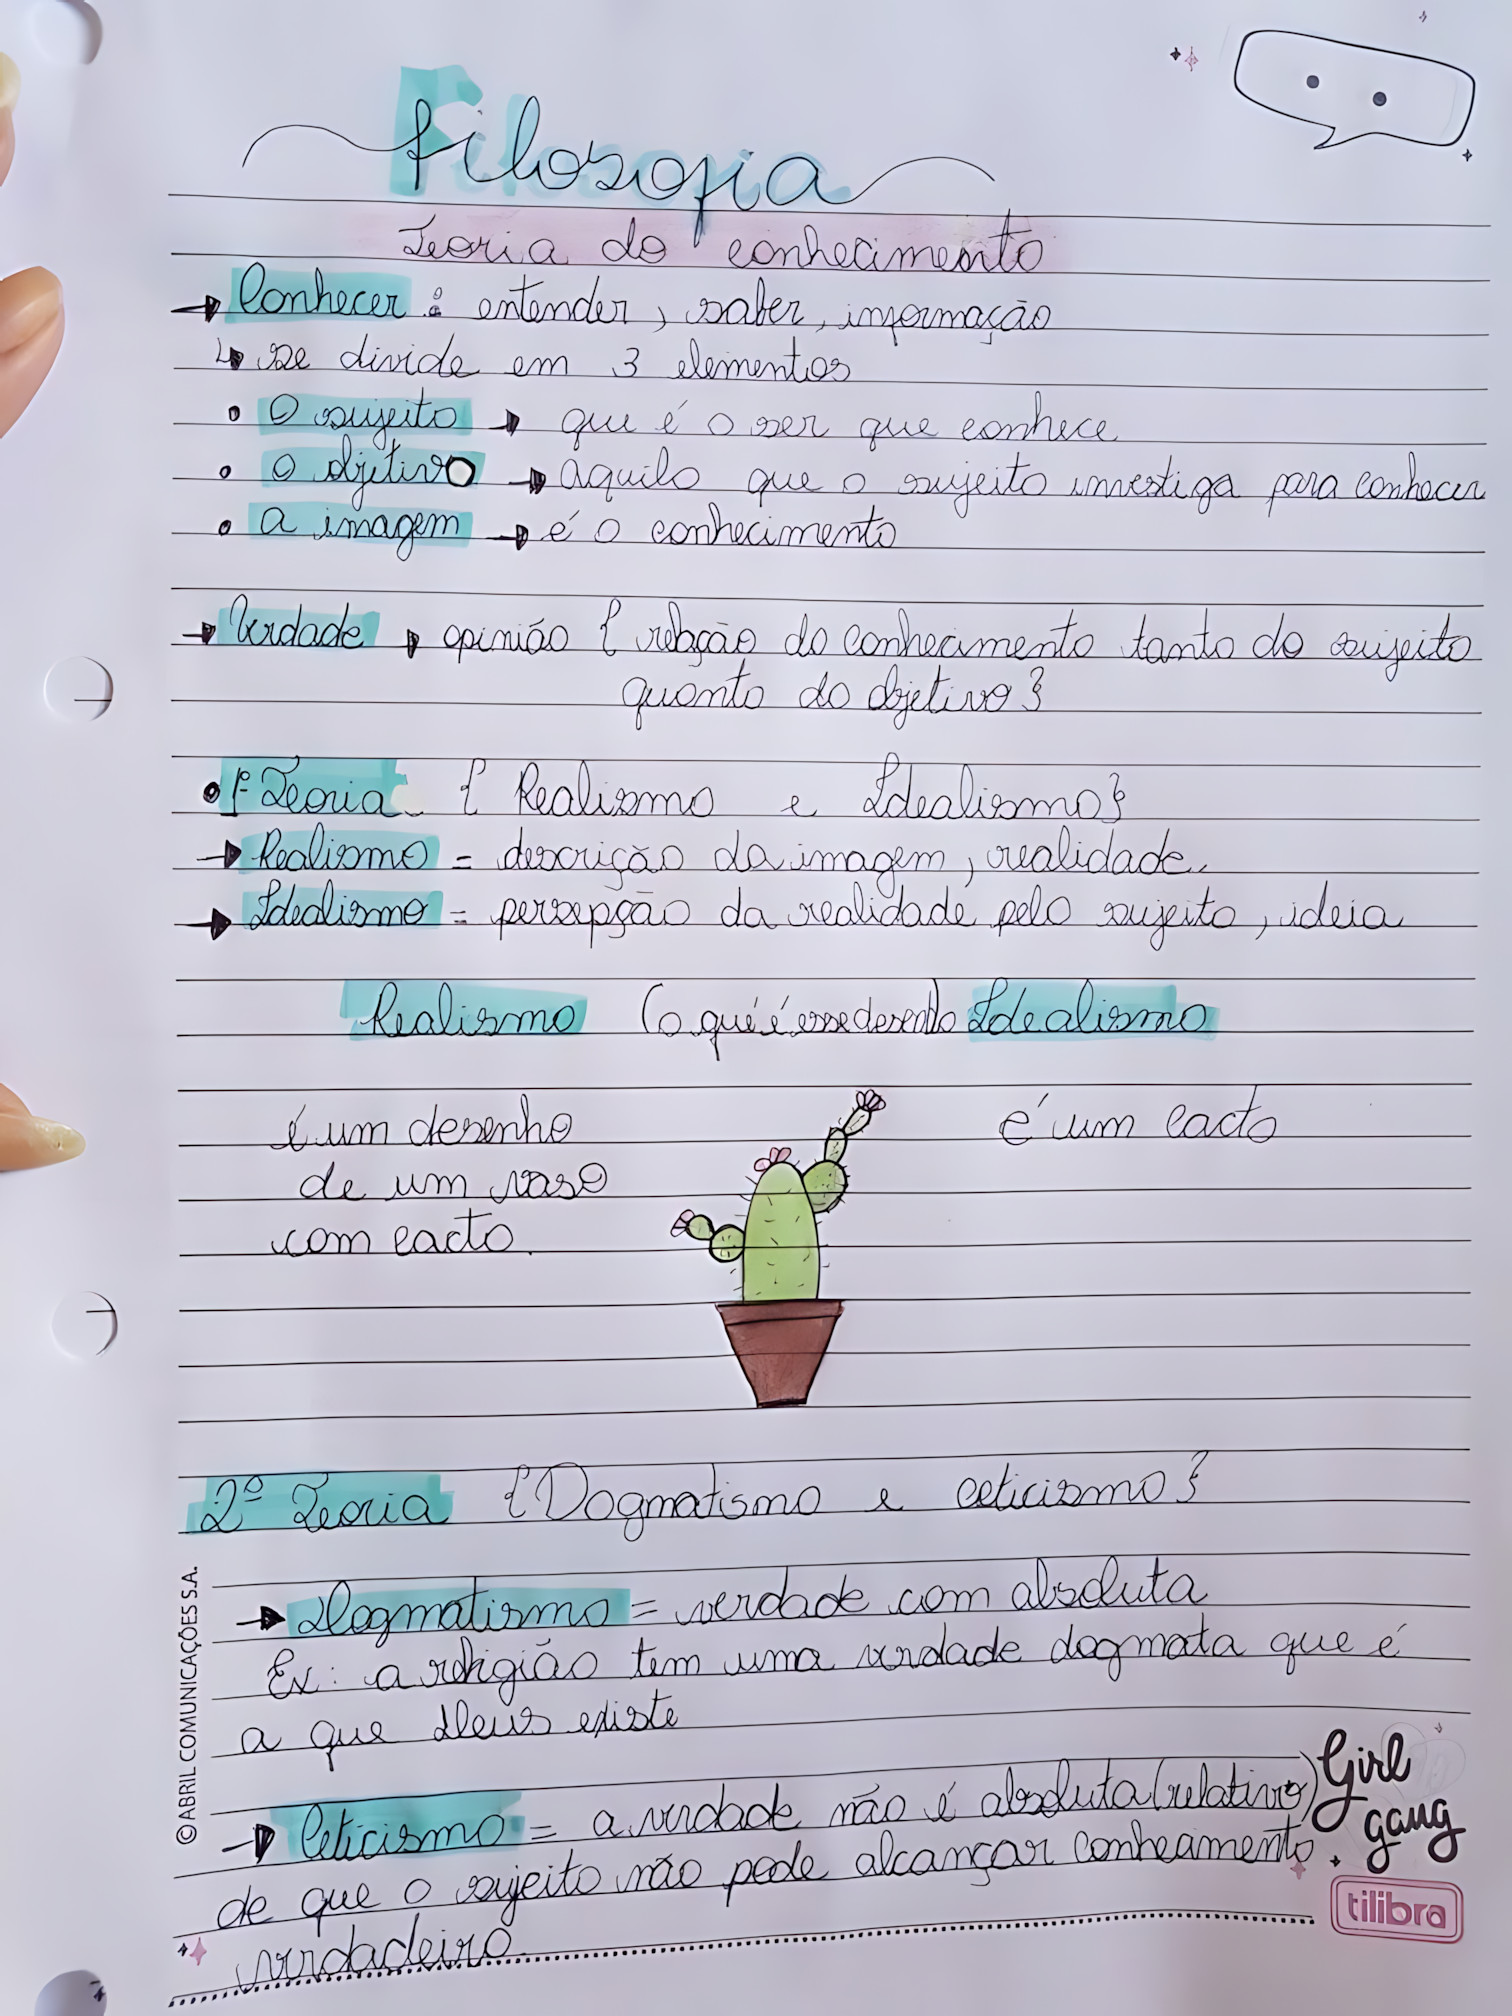 Filosofia
Teoria do conhecimento
→ Conhecer : entender, saber, informação
↳ se divide em 3 elementos
• O sujeito → que é o ser que conhece
• O objetivo → aquilo que o sujeito investiga para conhecer
• a imagem → é o conhecimento
→ Verdade → opinião { relação do conhecimento tanto do sujeito
quanto do objetivo }
• 1º Teoria { Realismo e Idealismo }
→ Realismo = descrição da imagem, realidade.
→ Idealismo = persepção da realidade pelo sujeito, ideia
Realismo (o que é esse desenho) Idealismo
é um desenho
de um vaso
com cacto.
é um cacto
2º Teoria { Dogmatismo e ceticismo }
→ Dogmatismo = verdade com absoluta
Ex: a religião tem uma verdade dogmata que é
a que Deus existe
→ Ceticismo = a verdade não é absoluta (relativo)
de que o sujeito não pode alcançar conhecimento
verdadeiro.
© ABRIL COMUNICAÇÕES S.A.
Girl
gang
tilibra